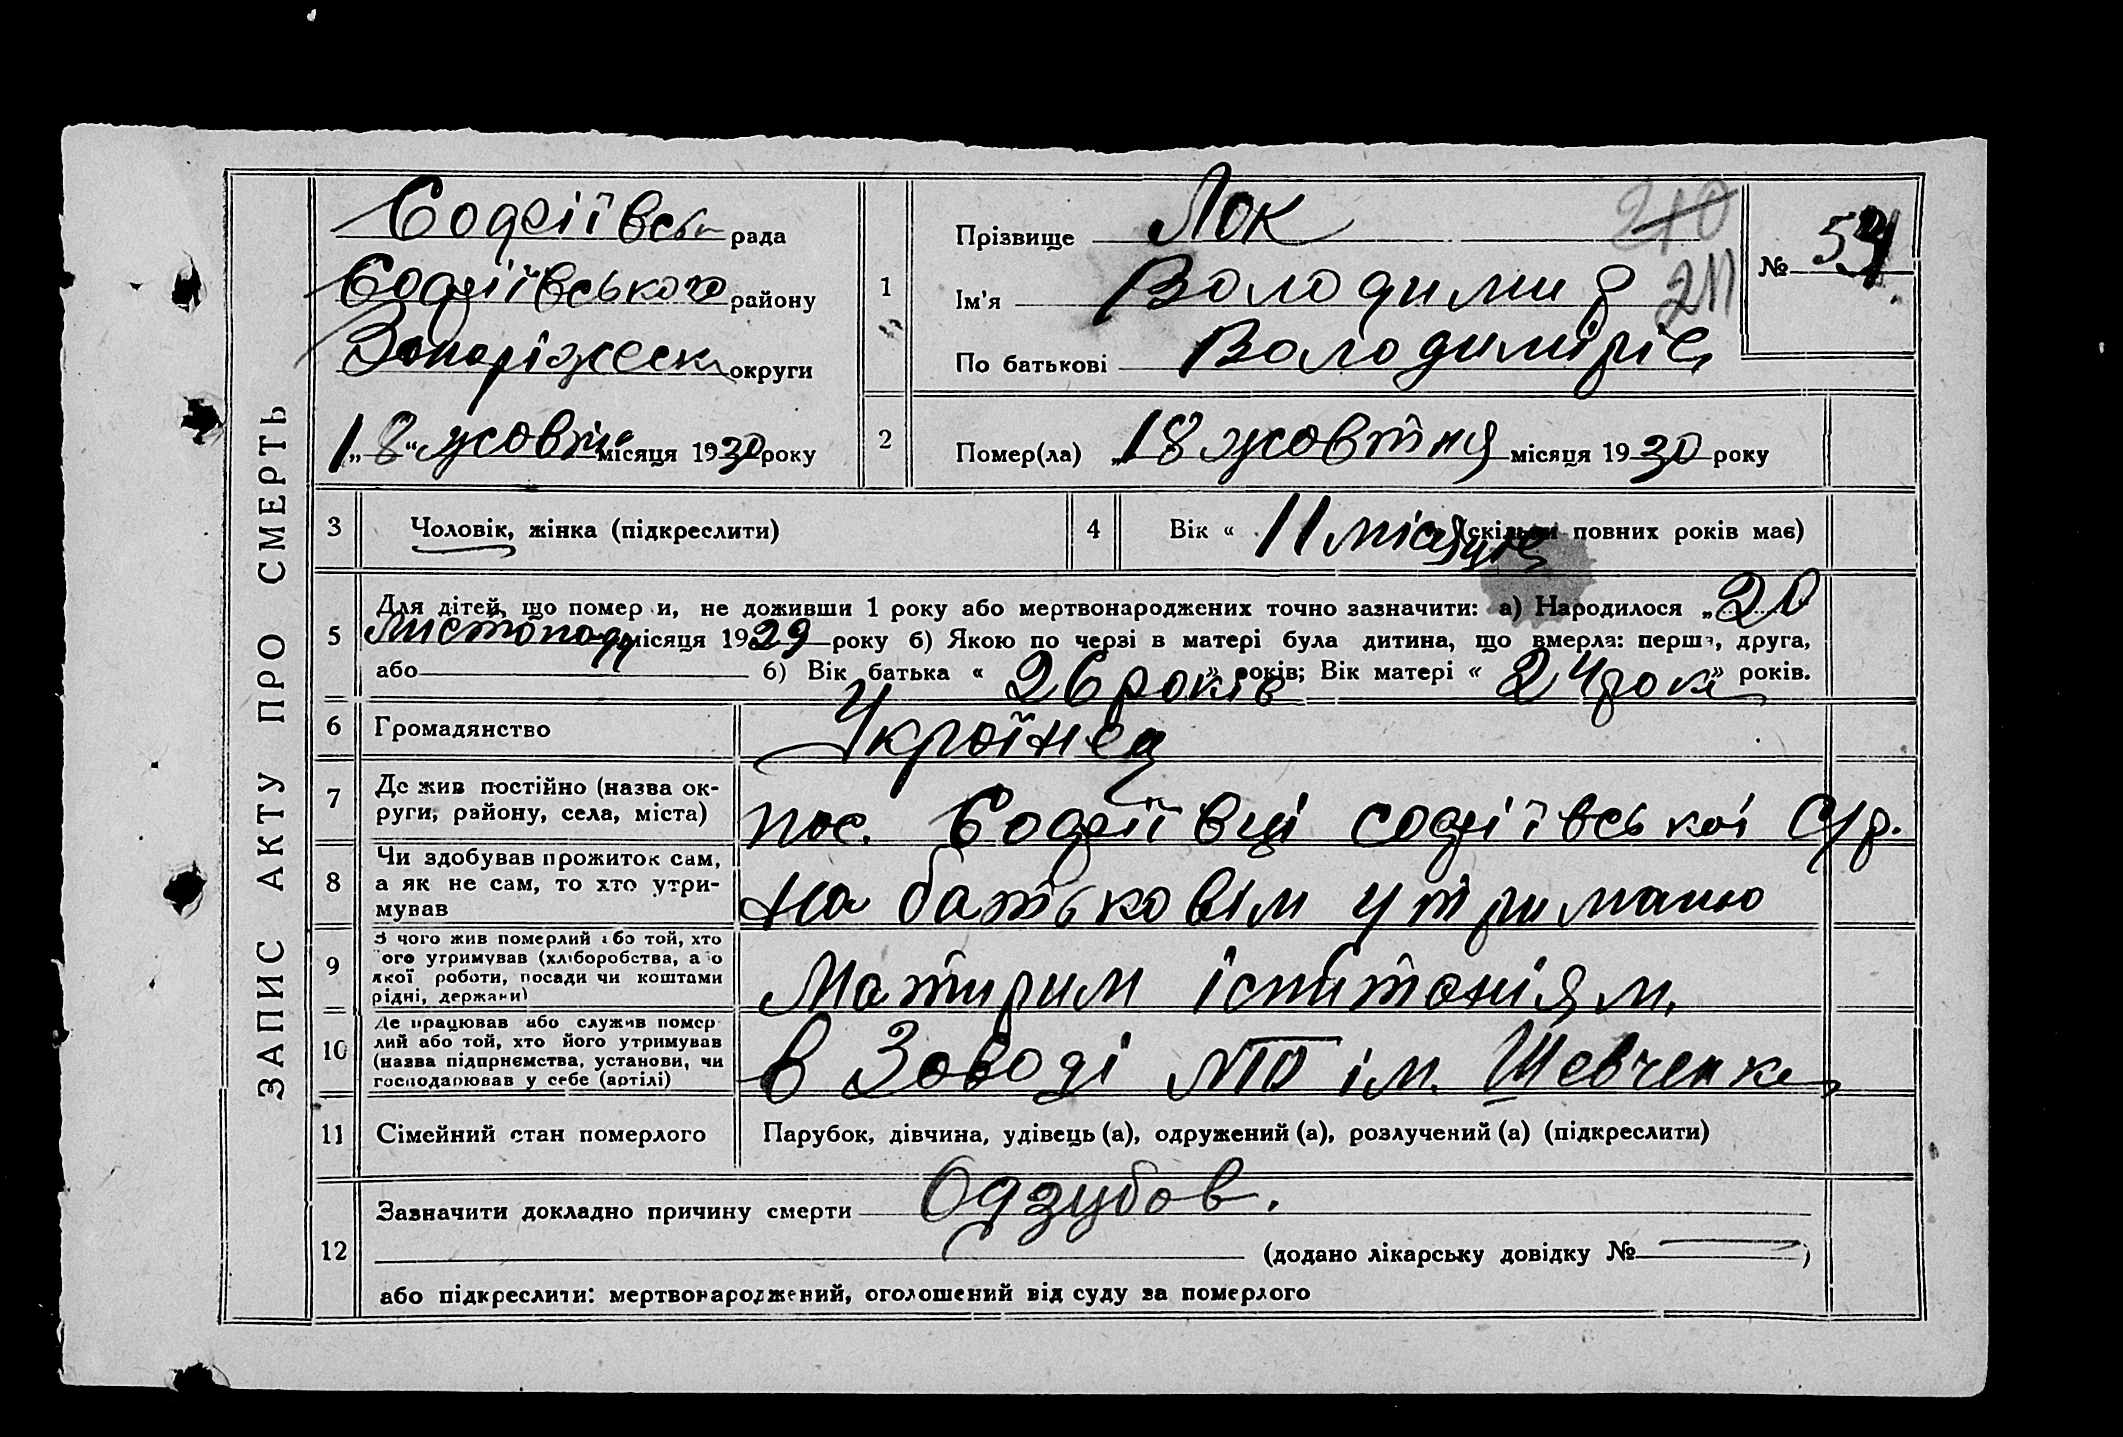 ЗАПИС АКТУ ПРО СМЕРТЬ
Софіївськ рада
Софіївського району
Запоріжськ округи
„18“ жовтня місяця 1930 року
1
Прізвище Лок
210
211
№ 54
Ім'я Володимир
По батькові Володимиріє
2
Помер(ла) „18 жовтня місяця 1930 року
3
Чоловік, жінка (підкреслити)
4
Вік « 11 місяців (скільки повних років має)
5
Для дітей, що помер и, не доживши 1 року або мертвонароджених точно зазначити: а) Народилося „20
листопаду місяця 1929 року б) Якою по черзі в матері була дитина, що вмерла: перша, друга,
або б) Вік батька « 26 років » років; Вік матері « 24 роки » років.
6
Громадянство
Україінец
7
Де жив постійно (назва ок-
руги, району, села, міста)
пос. Софіївці софіївської С/р.
8
Чи здобував прожиток сам,
а як не сам, то хто утри-
мував
на батьковім утриманю
9
З чого жив померлий або той, хто
його утримував (хліборобства, або
якої роботи, посади чи коштами
рідні, держави)
10
Де працював або служив помер
лий або той, хто його утримував
(назва підприємства, установи, чи
господарював у себе (артілі)
в Заводі ім. Шевченка
11
Сімейний стан померлого
Парубок, дівчина, удівець (а), одружений (а), розлучений (а) (підкреслити)
12
Зазначити докладно причину смерти Одзубов.
(додано лікарську довідку № )
або підкреслити: мертвонароджений, оголошений від суду за померлого